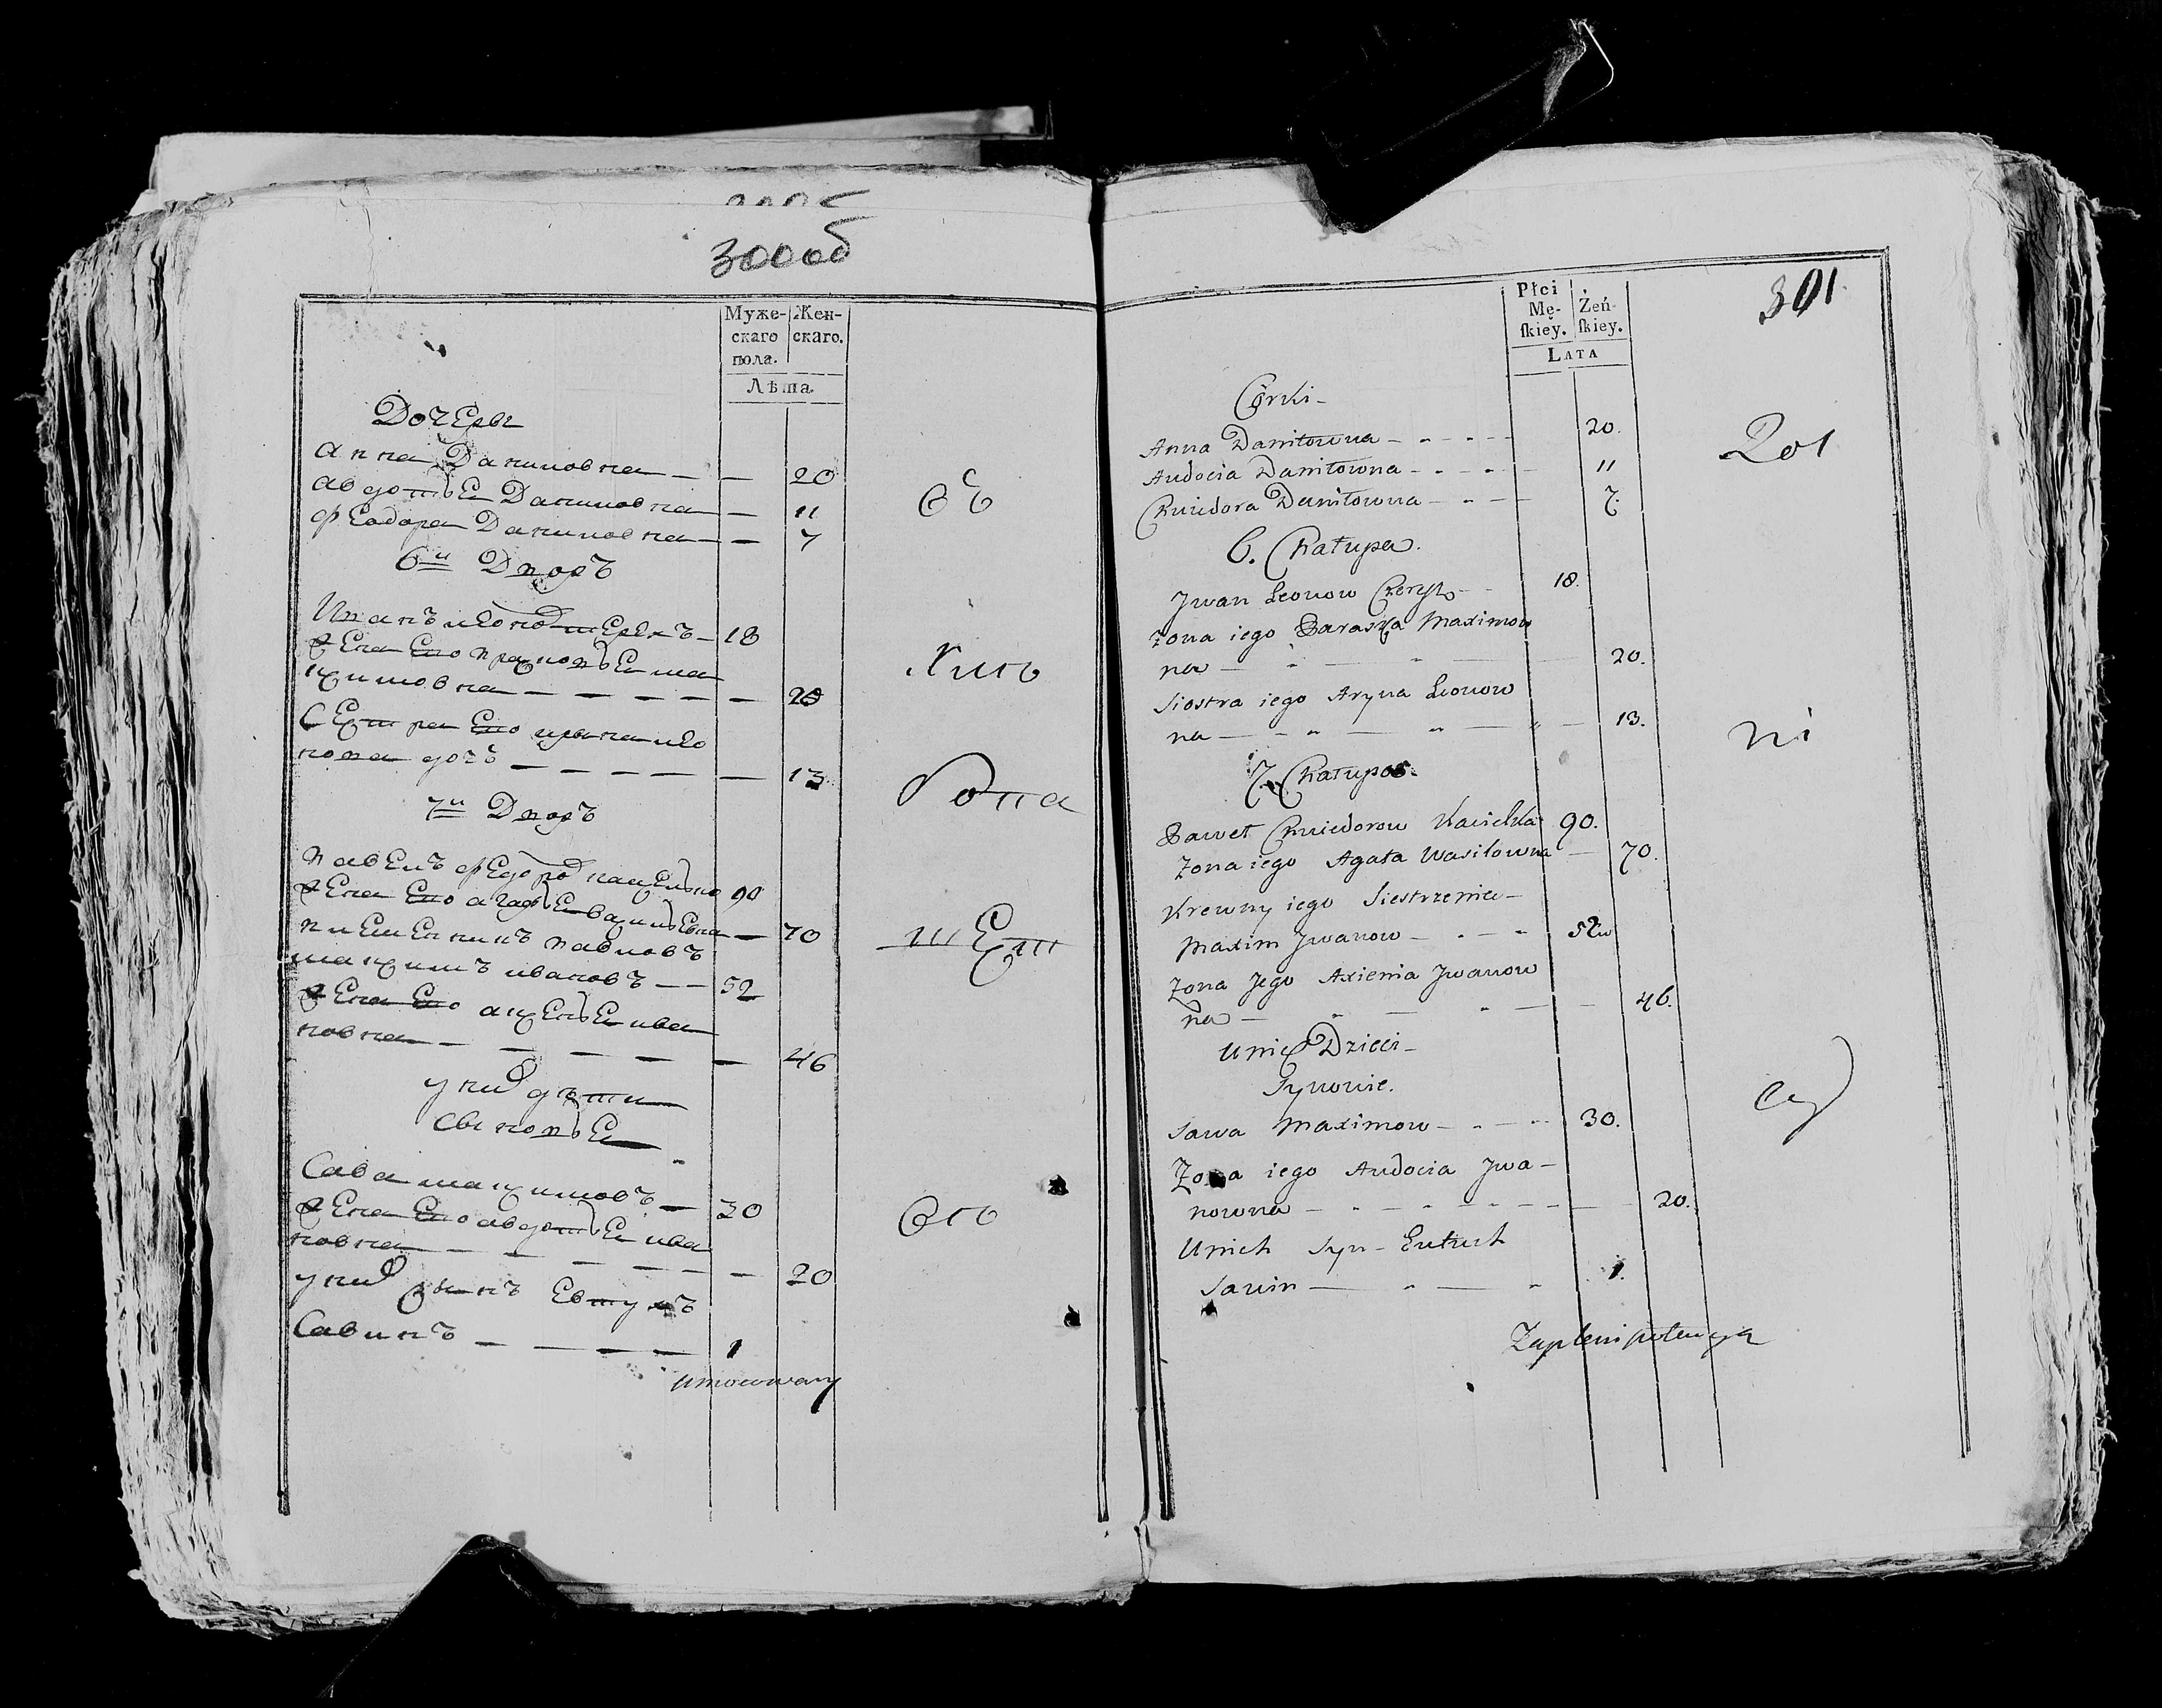 300об
Муже-
скаго
пола.
Жен-
скаго.
Лѣта
Дочеры
Анна Даниловна — — 20
Авдотья Даниловна — 11
Феодора Даниловна — — 7
6й Дворъ
Иванъ — 18
жена его Прасковья Ма
ксимовна — — — — — 20
Сестра его Арына Лео
нова дочь — — — — — 13
7й Дворъ
Павелъ Федоров 90
жена его Агафья Васильевна — 70
племенникъ Павловъ
Максимъ Ивановъ — — 52
жена его Аксенья Ива
новна — — — — — 46
у них дети
Сыновье
Сава Максимовъ — 30
жена его Авдотья Ива
новна — — — — — 20
у них сынъ Евтухъ
Савинъ — — — — 1
Umocowany
Рона
шет
Płci
Mę-
skiey.
Żeń-
skiey.
LATA
301.
Córki —
Anna Daniłowna — — — 20.
Audocia Daniłowna — — — 11
Chwiedora Daniłowna — — — 7.
6. Chałupa.
Jwan Leonow — 18.
Żona iego Paraska Maximow
na — — — 20.
Siostra iego Aryna Leonow
na — — — 13.
7. Chałupa.
Paweł Chwiedorow 90.
Żona iego Agata Wasilowna — 70.
Krewny iego Siestrzeniec —
Maxim Jwanow — — — 52
Żona Jego Axienia Jwanow
na — — — 46.
U nich Dzieci —
Synowie.
Sawa Maximow — — — 30.
Żona iego Audocia Jwa —
nowna — — — 20.
U nich Syn — Eutuch
Sawin — — — 1.
201
ni
Zaplenipotencyą